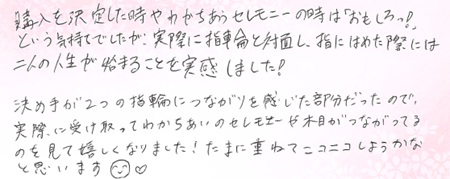 購入を決定した時やわかちあうセレモニーの時は「おもしろっ!」
という気持ちでしたが、実際に指輪と対面し、指にはめた際には
二人の人生が始まることを実感しました!
決め手が2つの指輪につながりを感じた部分だったので、
実際に受け取ってわかちあいのセレモニーや木目がつながってる
のを見て嬉しくなりました!たまに重ねてニコニコしようかな
と思います